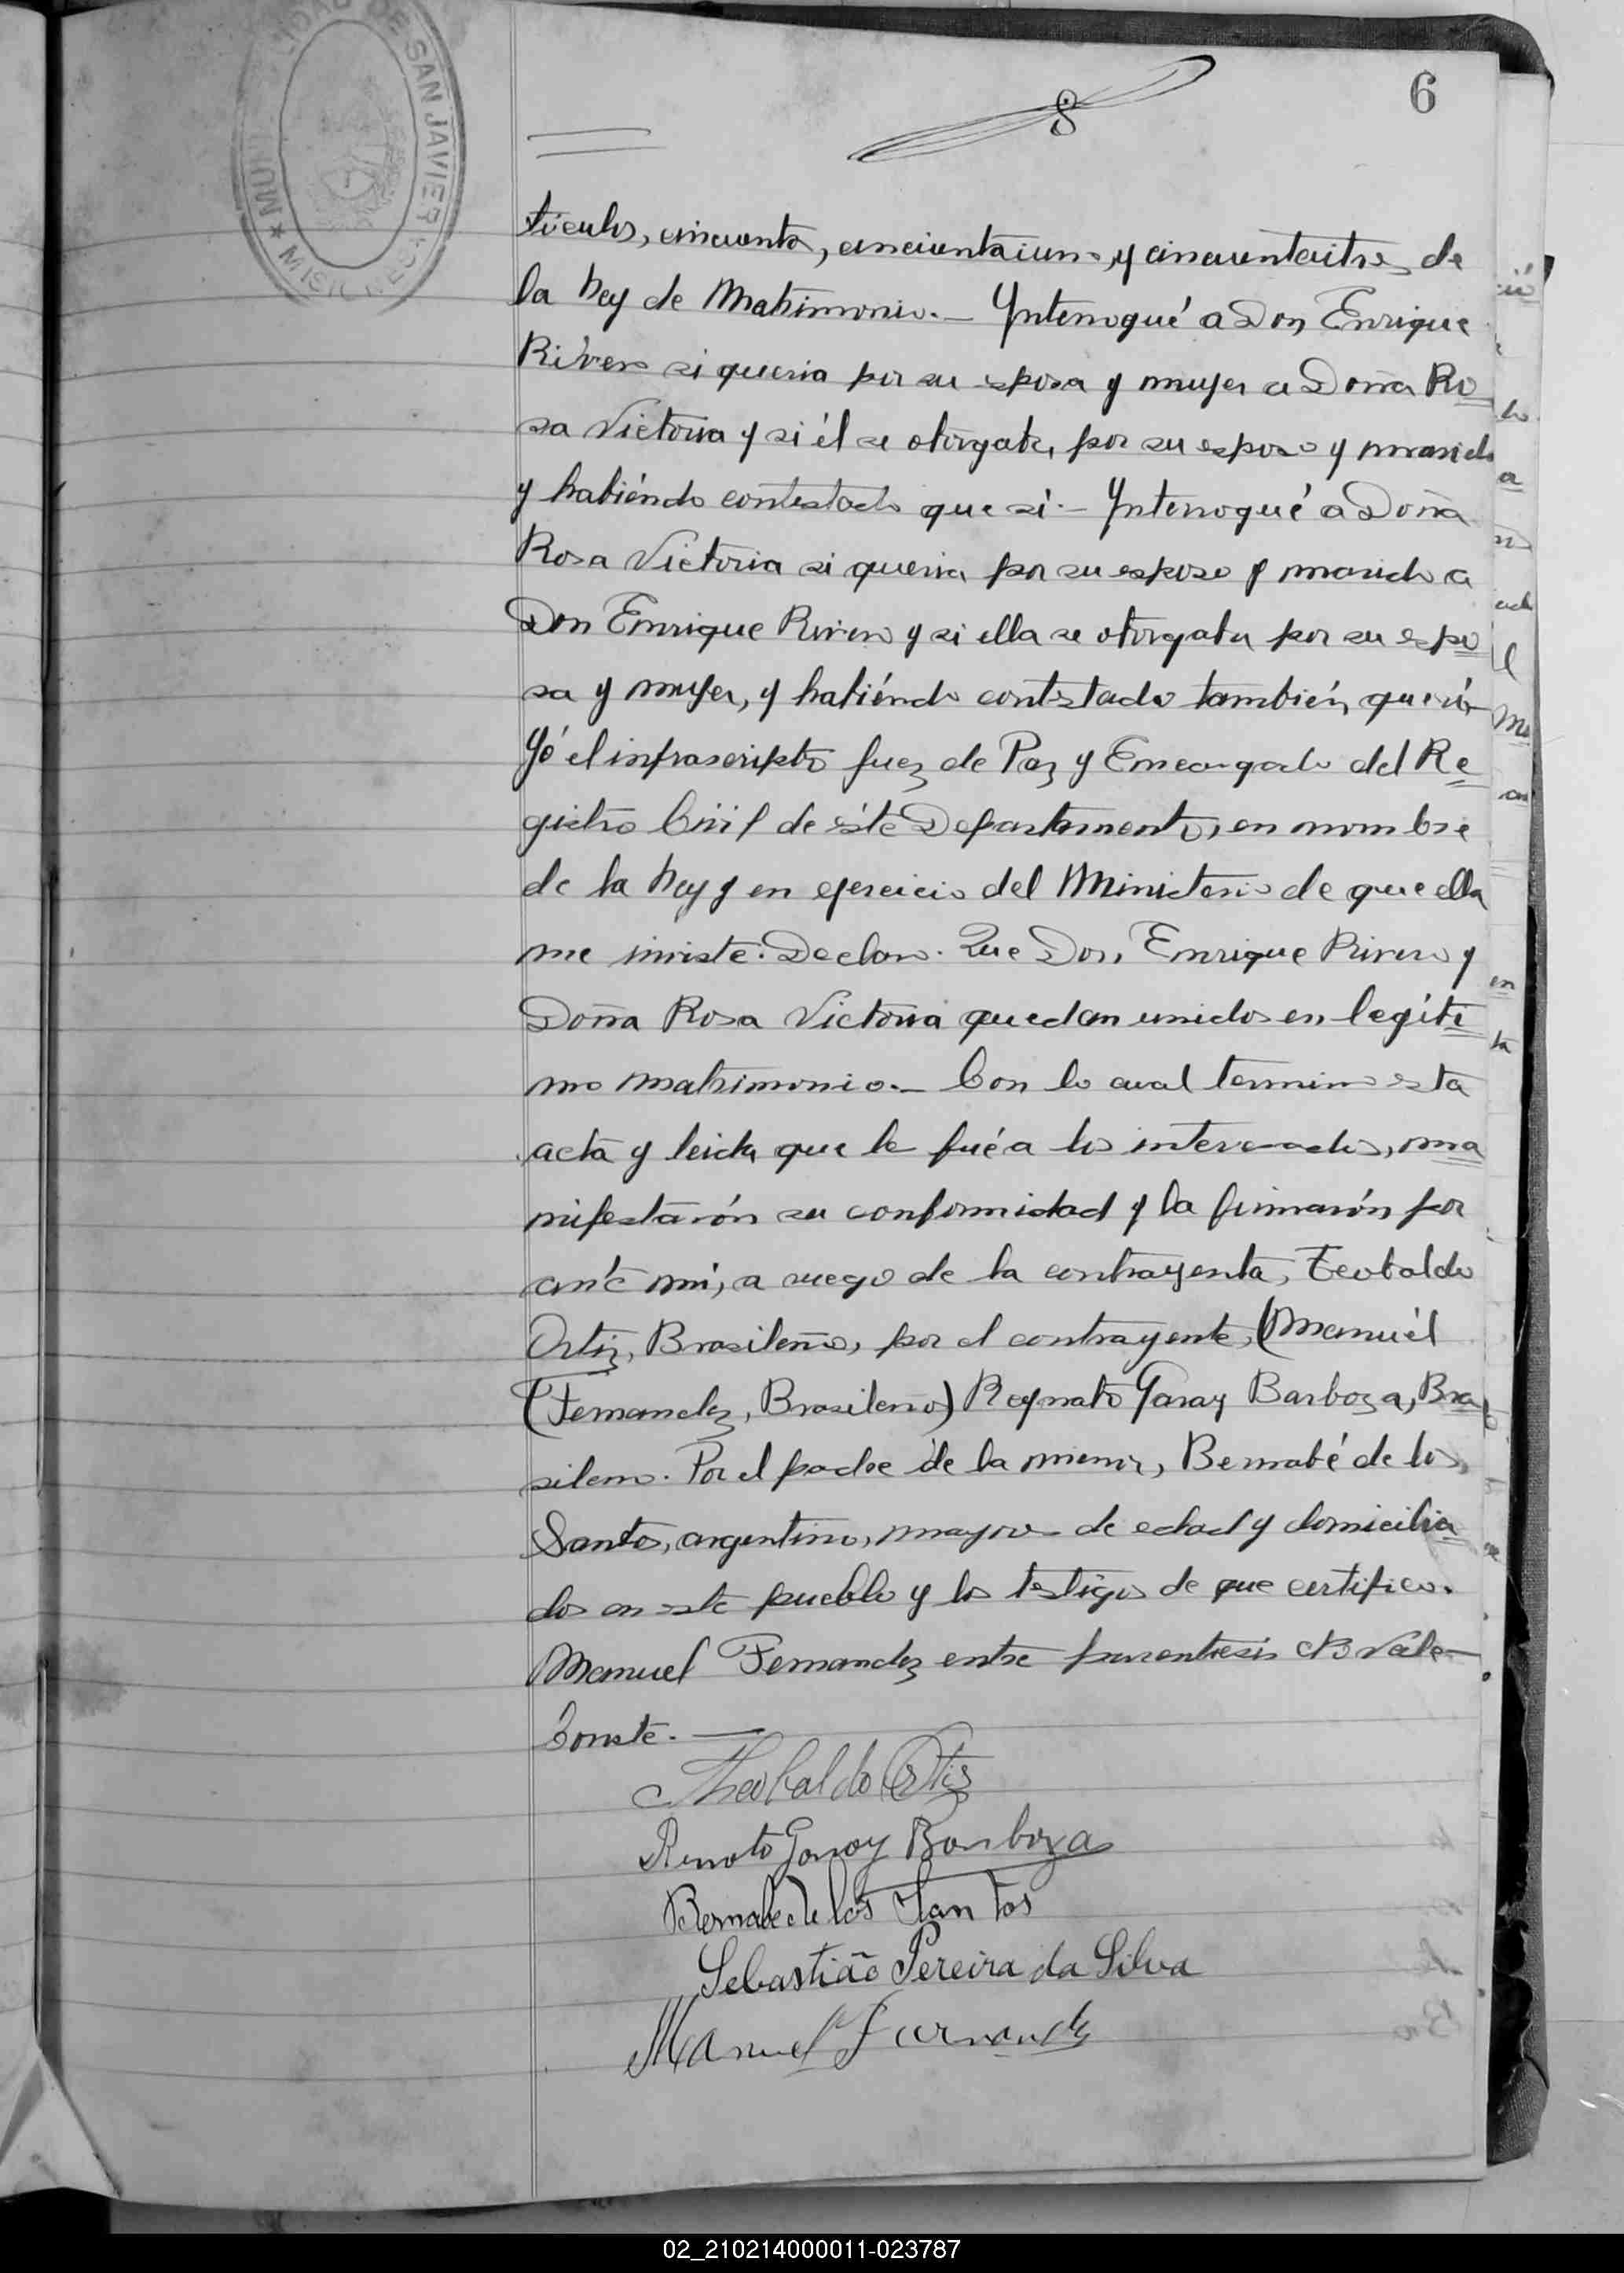 MUNICIPALIDAD DE SAN JAVIER
★ MISIONES ★
6
8
tículos, cincuenta, cincuentaiuno, y cincuentaitres de
la Ley de Matrimonio.— Ynterrogué a Don Enrique
Rivero si queria por su esposa y mujer a Doña Ro
sa Victoria y si él se otorgaba, por su esposo y marido
y habiéndo contestado que sí.— Ynterrogué a Doña
Rosa Victoria si queria por su esposo y marido a
Don Enrique Rivero y si ella se otorgaba por su espo
sa y mujer, y habiéndo contestado también, que sí.—
Yó el infrascripto Juez de Paz y Encargado del Re
gistro Civil de éste Departamento, en nombre
de la Ley y en ejercicio del Ministerio de que ella
me inviste: Declaro. Que Don, Enrique Rivero y
Doña Rosa Victoria quedan unidos en legíti
mo matrimonio.— Con lo cual termino esta
acta y leida que le fué a los interesados, ma
nifestarón su conformidad y la firmarón por
anté mi, a ruego de la contrayenta, Teobaldo
Ortiz, Brasileño, por el contrayente, (Manuél
(Fernandez, Brasileño) Reynato Garay Barboza, Bra
sileno. Por el padre de la menor, Bernabé de los,
Santos, argentino, mayores de edad y domicilia
dos en este pueblo y los testigos de que certifico.
Manuel Fernandez entre parentesis No vale—
Conste.—
Theobaldo Ortis
Renato Garay Barboza
Bernabe de los Santos
Sebastião Pereira da Silva
Manuel Fernandez
02_210214000011-023787